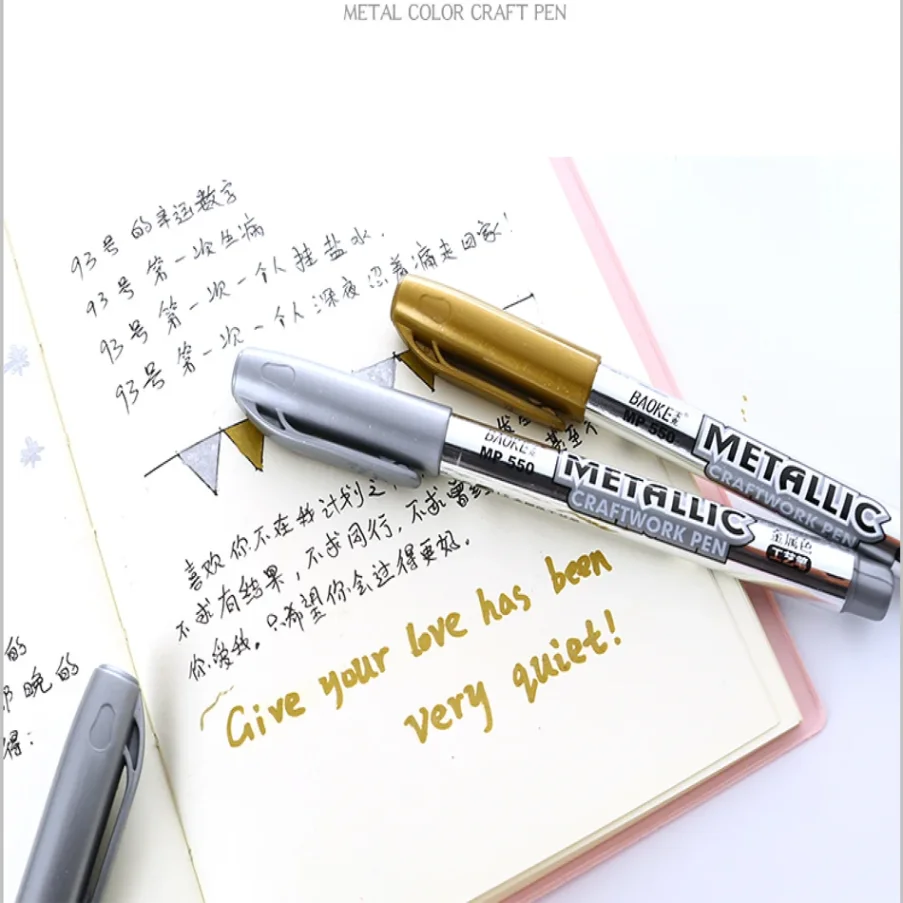 METAL COLOR CRAFT PEN
93号的幸运数字
93号第一次生病
93号第一次一个人挂盐水.
93号第一次一个人深夜忍着痛走回家!
BAOKE
MP-550
METALLIC
CRAFTWORK PEN
BAOKE
MP-550
METALLIC
CRAFTWORK PEN
金属色
工艺笔
甚至不
喜欢你不在我计划之
不求有结果, 不求同行, 不求曾经
你爱我。只希望你会过得更好。
Give your love has been
very quiet!
的
晚的
得: